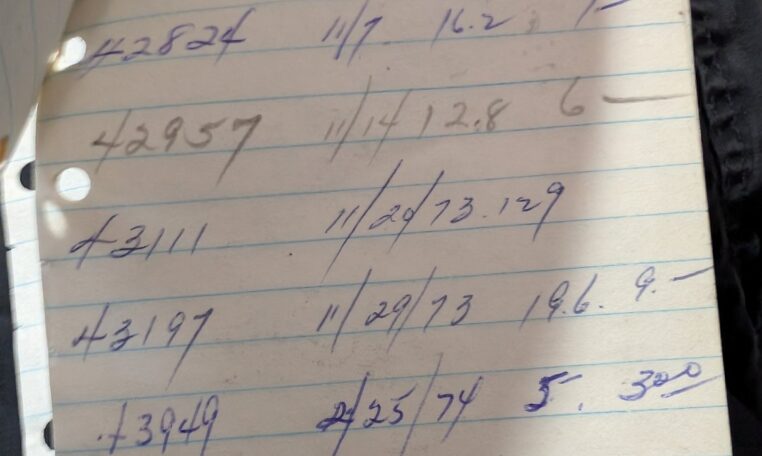 42824 11/7 16.2
42957 11/14 12.8 6 —
43111 11/20/73 .129
43197 11/29/73 19.6. 9.—
43949 2/25/74 5. 3.00